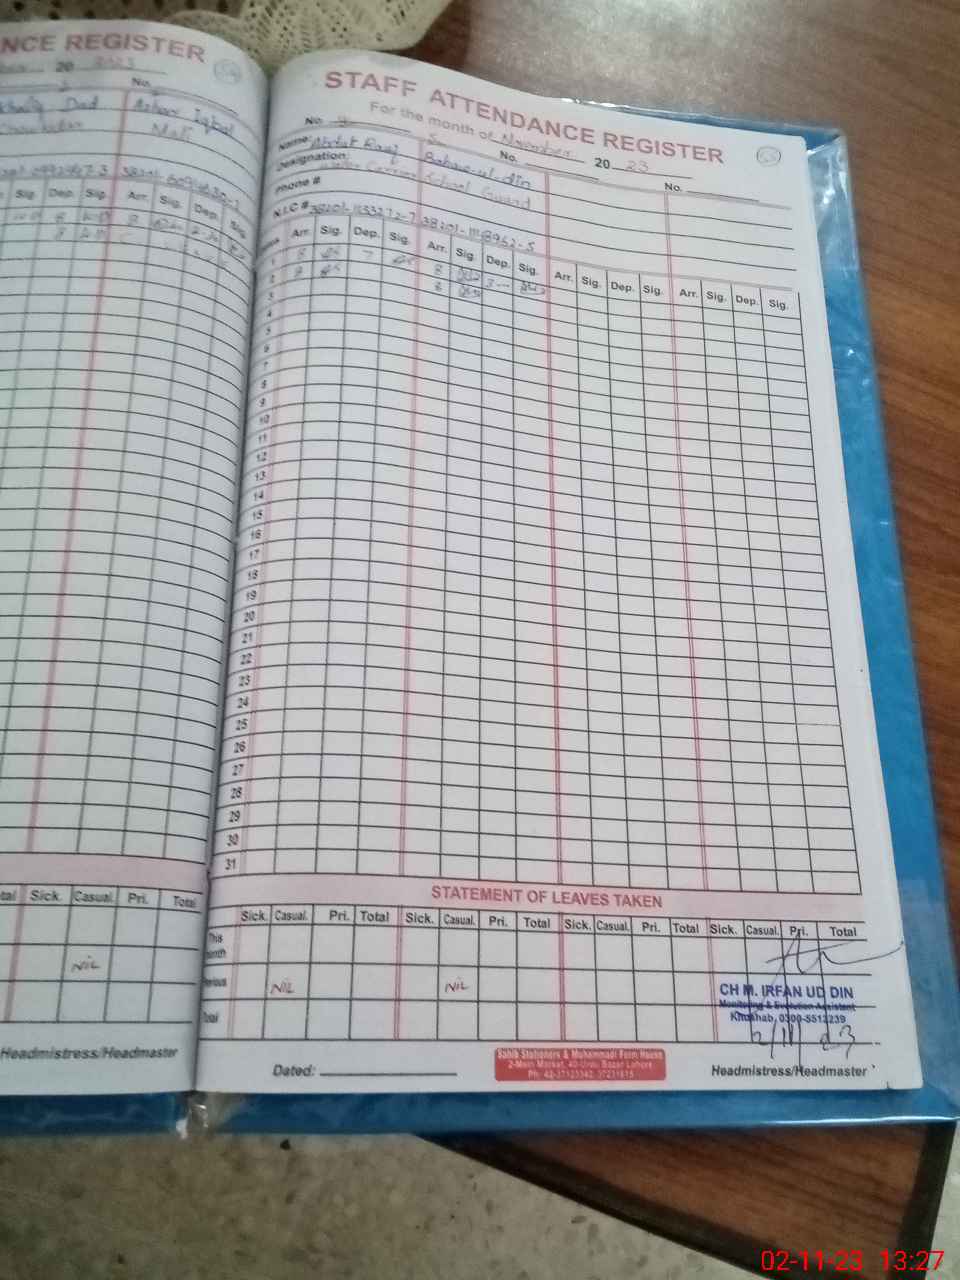 NCE REGISTER
20 2023
No.
Khaliq Dad
Azhar Iqbal
Chowkidar
Mali
Sig. Dep. Sig. Arr. Sig. Dep. Sig.
tal Sick. Casual. Pri. Total
NiL
Headmistress/Headmaster
STAFF ATTENDANCE REGISTER
For the month of November 20 23
55
No. 4 No. 5 No.
Name: Abdul Rauf Bahar-ul-din
Designation: Water Carrier School Guard
Phone #
N.I.C # 38201-1153272-7 38201-1118962-5
Arr. Sig. Dep. Sig. Arr. Sig. Dep. Sig. Arr. Sig. Dep. Sig. Arr. Sig. Dep. Sig.
1 8 7 8
2 8 8
3
4
5
6
7
8
9
10
11
12
13
14
15
16
17
18
19
20
21
22
23
24
25
26
27
28
29
30
31
STATEMENT OF LEAVES TAKEN
Sick. Casual. Pri. Total Sick. Casual. Pri. Total Sick. Casual. Pri. Total Sick. Casual. Pri. Total
This
NiL NiL
CH M. IRFAN UD DIN
Monitoring & Evolution Assistant
Khushab, 0300-5513239
2/11/23
Dated:
Sahib Stationers & Muhammadi Form House
2-Main Market, 40-Urdu Bazar Lahore
Ph: 42-37123342, 37231615
Headmistress/Headmaster
02-11-23 13:27